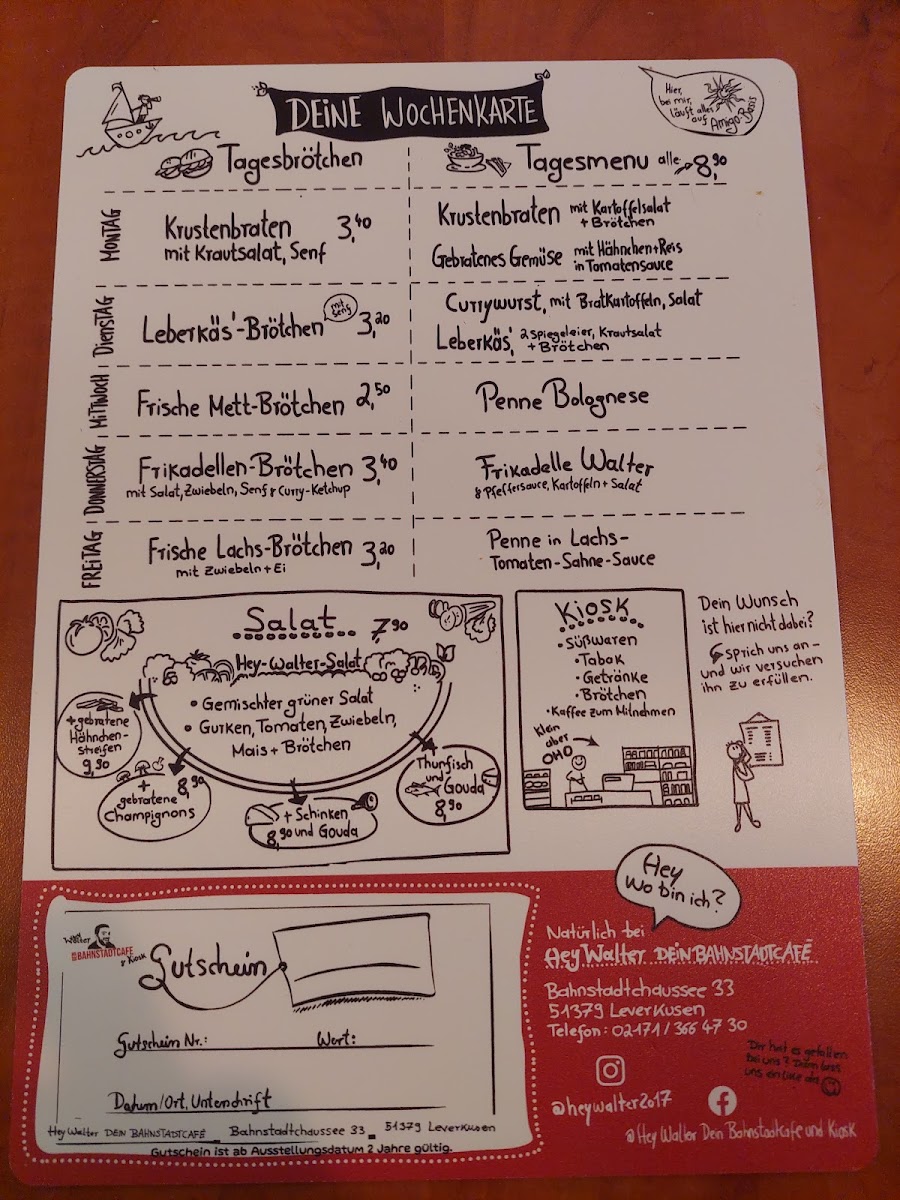 DEINE WOCHENKARTE
Hier,
bei mir,
läuft alles
auf
Amigo-Basis
Tagesbrötchen
Tagesmenu alle 8,90
MONTAG
Krustenbraten 3,40
mit Krautsalat, Senf
Krustenbraten mit Kartoffelsalat
+ Brötchen
Gebratenes Gemüse mit Hähnchen+Reis
in Tomatensauce
DIENSTAG
Leberkäs'-Brötchen 3,20
mit
Senf
Currywurst, mit Bratkartoffeln, Salat
Leberkäs', 2 Spiegeleier, Krautsalat
+ Brötchen
MITTWOCH
Frische Mett-Brötchen 2,50
Penne Bolognese
DONNERSTAG
Frikadellen-Brötchen 3,40
mit Salat, Zwiebeln, Senf & Curry-Ketchup
Frikadelle Walter
& Pfeffersauce, Kartoffeln + Salat
FREITAG
Frische Lachs-Brötchen 3,20
mit Zwiebeln + Ei
Penne in Lachs-
Tomaten-Sahne-Sauce
Salat 7,90
Hey-Walter-Salat
• Gemischter grüner Salat
• Gurken, Tomaten, Zwiebeln,
Mais + Brötchen
+ gebratene
Hähnchen-
streifen
9,90
+ 8,90
gebratene
Champignons
+ Schinken
8,90 und Gouda
Thunfisch
und
Gouda
8,90
Kiosk
• Süßwaren
• Tabak
• Getränke
• Brötchen
• Kaffee zum Mitnehmen
Klein
aber
OHO
Dein Wunsch
ist hier nicht dabei?
Sprich uns an -
und wir versuchen
ihn zu erfüllen.
Hey
Wo bin ich?
Natürlich bei
Hey Walter DEIN BAHNSTADTCAFÉ
Bahnstadtchaussee 33
51379 Leverkusen
Telefon: 02171/366 47 30
Dir hat es gefallen
bei uns? Dann lass
uns ein Like da
@heywalter2017
@Hey Walter Dein Bahnstadtcafe und Kiosk
Hey Walter
BAHNSTADTCAFÉ
& Kiosk
Gutschein
Gutschein Nr.: Wert:
Datum/Ort, Unterschrift
Hey Walter DEIN BAHNSTADTCAFÉ Bahnstadtchaussee 33 51379 Leverkusen
Gutschein ist ab Ausstellungsdatum 2 Jahre gültig.